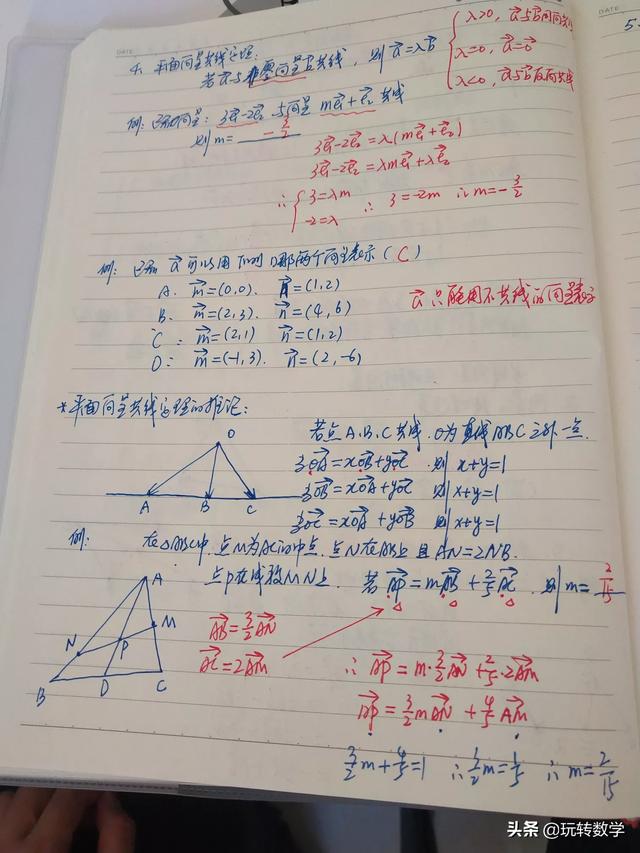 DATE
4、平面向量共线定理:
若a⃗与非零向量b⃗共线, 则a⃗=λb⃗
λ>0, a⃗与b⃗同向共线
λ=0, a⃗=0⃗
λ<0, a⃗与b⃗反向共线
例: 已知向量: 3e₁⃗-2e₂⃗与向量 me₁⃗+e₂⃗共线
则m= -3/2
3e₁⃗-2e₂⃗=λ(me₁⃗+e₂⃗)
3e₁⃗-2e₂⃗=λme₁⃗+λe₂⃗
∴ { 3=λm
-2=λ
∴ 3=-2m ∴m=-3/2
例: 已知 a⃗可以用下列哪两个向量表示 ( C )
A. m⃗=(0,0). n⃗=(1,2)
B. m⃗=(2,3). n⃗=(4,6)
C: m⃗=(2,1) n⃗=(1,2)
D: m⃗=(-1,3). n⃗=(2,-6)
a⃗只能用不共线的向量表示
*平面向量共线定理的推论:
若点A、B、C共线, O为直线ABC之外一点.
O
A B C
若OA⃗=xOB⃗+yOC⃗ 则 x+y=1
若OB⃗=xOA⃗+yOC⃗ 则 x+y=1
若OC⃗=xOA⃗+yOB⃗ 则 x+y=1
例: 在△ABC中, 点M为AC的中点, 点N在AB上且AN=2NB.
点P在线段MN上. 若AP⃗=mAB⃗+2/5AC⃗, 则m=2/15
A
N P M
B D C
AB⃗=3/2AN⃗
AC⃗=2AM⃗
∴ AP⃗=m·3/2AN⃗+2/5·2AM⃗
AP⃗=3/2mAN⃗+4/5AM⃗
3/2m+4/5=1 ∴3/2m=1/5 ∴m=2/15
头条 @玩转数学